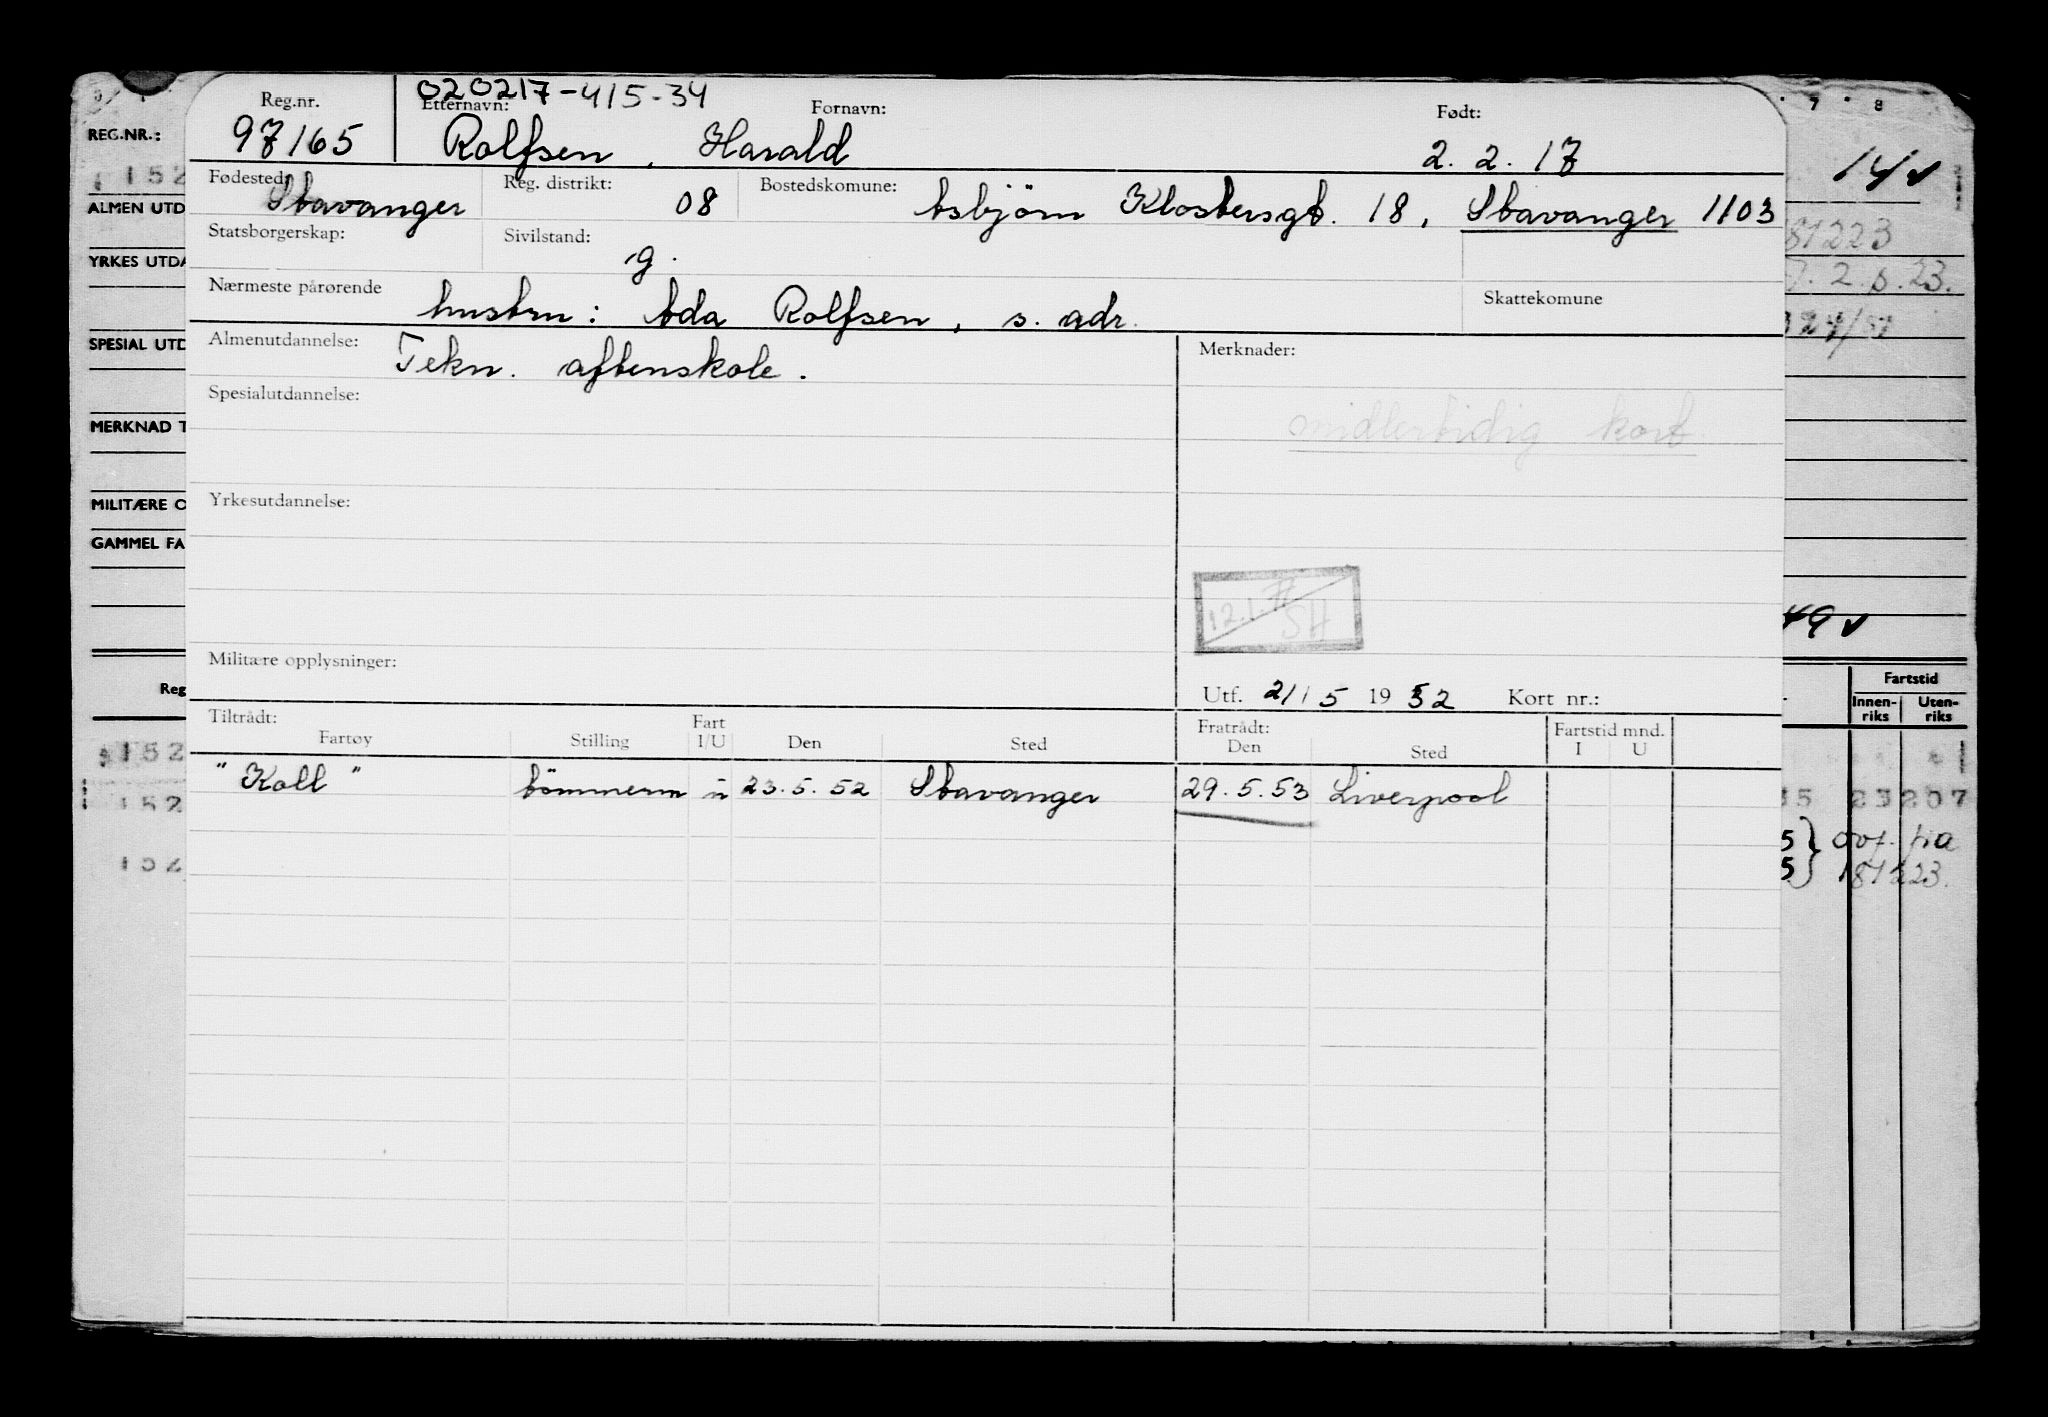 Reg.nr. 020217-415-34
Etternavn: Fornavn: Født:
97165 Rolfsen, Harald 2. 2. 17
Fødested: Reg. distrikt: Bostedskomune:
Stavanger 08 Asbjørn Klostersgt. 18, Stavanger 1103
Statsborgerskap: Sivilstand:
g.
Nærmeste pårørende Skattekomune
hustru: Ada Rolfsen, s. adr.
Almenutdannelse: Merknader:
Tekn. aftenskole.
Spesialutdannelse:
midlertidig kort
Yrkesutdannelse:
12.1.77 SH
Militære opplysninger:
Utf. 21/5 1952 Kort nr.:
Tiltrådt: Fart Fratrådt: Fartstid mnd.
Fartøy Stilling I/U Den Sted Den Sted I U
"Koll" tömmerm u 23.5.52 Stavanger 29.5.53 Liverpool
REG.NR.:
152
ALMEN UTD
YRKES UTDA
SPESIAL UTD
MERKNAD T
MILITÆRE O
GAMMEL FA
Reg
152
152
152
7 8
14 ✓
81223
49 ✓
Fartstid
Innen-riks Uten-riks
23 207
5} ovf. fra
5} 181223.